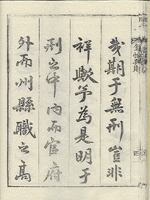 期于無刑豈非
祥歟為是明于
刑之中內而官府
外而州縣職之